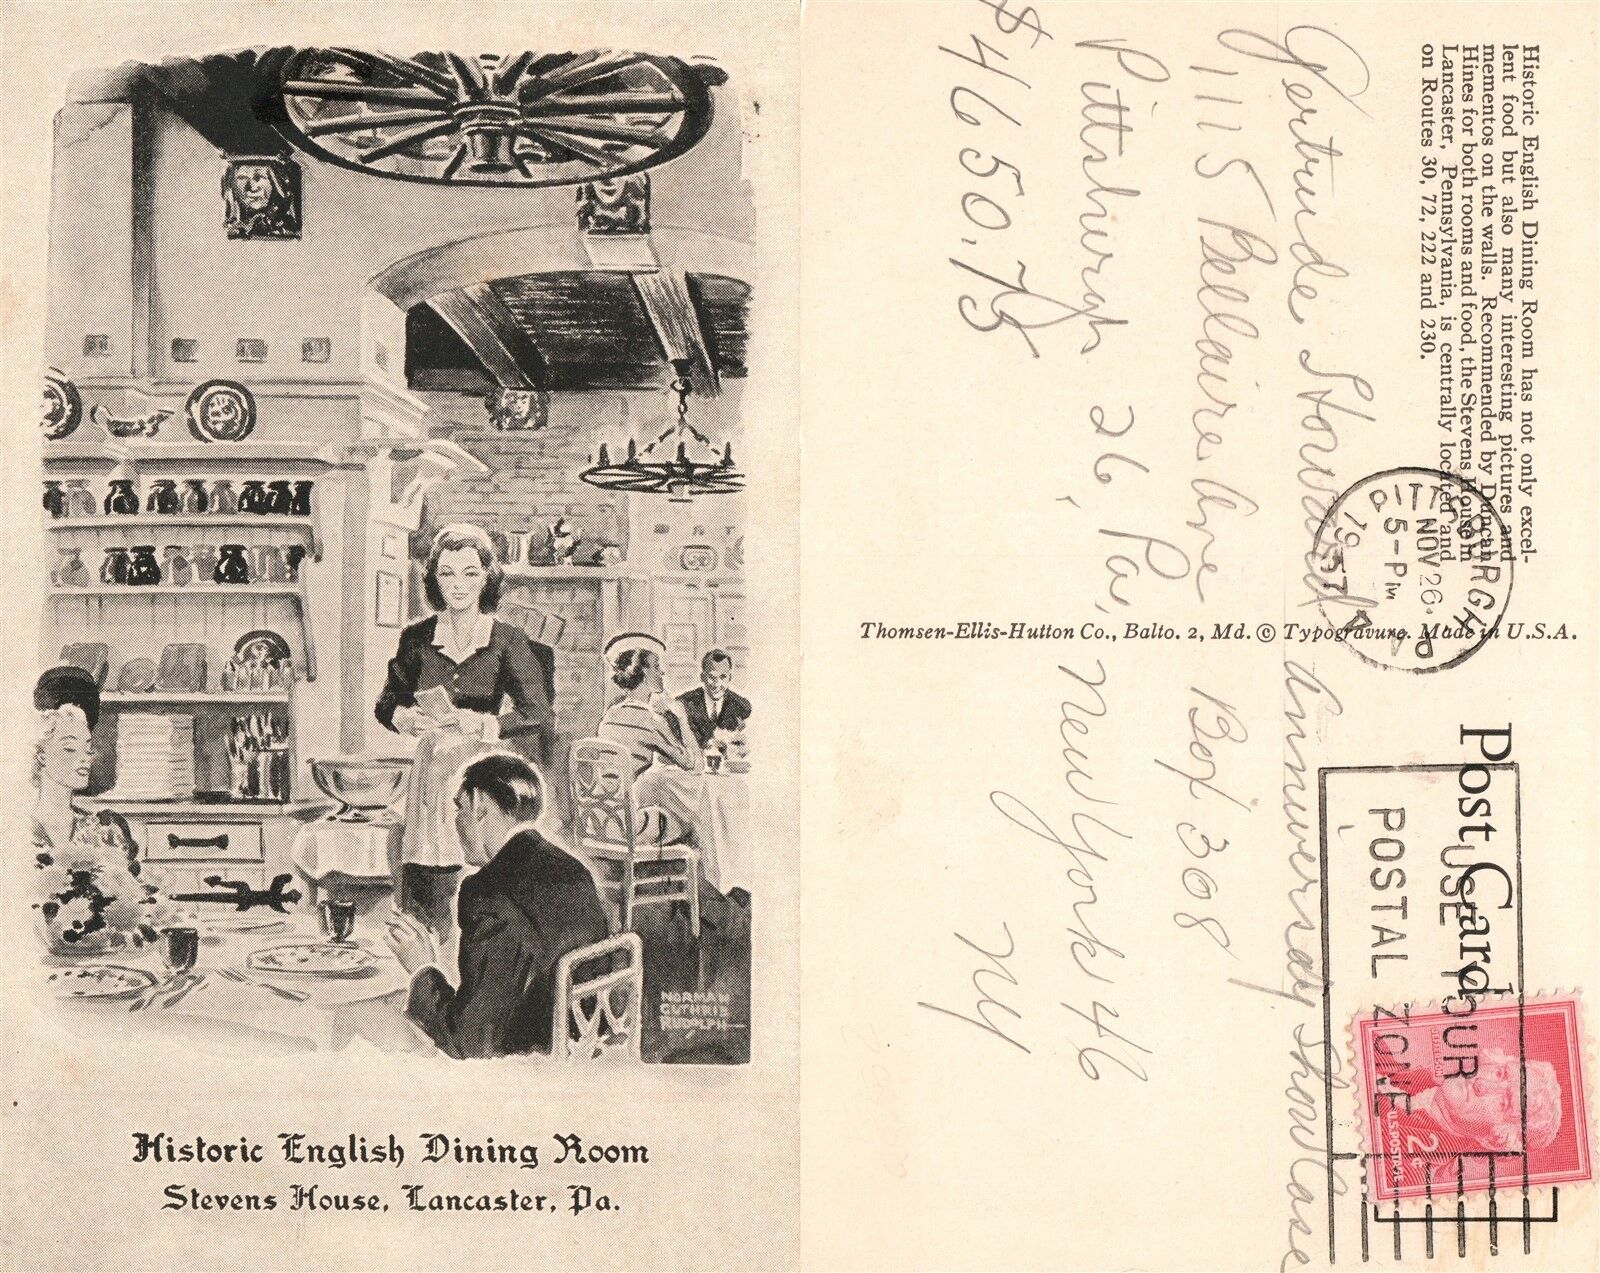 NORMAN
GUTHRIE
RUDOLPH
Historic English Dining Room
Stevens House, Lancaster, Pa.
Historic English Dining Room has not only excel-
lent food but also many interesting pictures and
mementos on the walls. Recommended by Duncan
Hines for both rooms and food, the Stevens House in
Lancaster, Pennsylvania, is centrally located and
on Routes 30, 72, 222 and 230.
Gertrude Stoward
1115 Bellaire Ave
Pittsburgh 26, Pa,
$4650.75
Thomsen-Ellis-Hutton Co., Balto. 2, Md. © Typogravure. Made in U.S.A.
PITTSBURGH
PA
NOV 26
5-PM
1957
Post Card
USE YOUR
POSTAL ZONE
JEFFERSON
2¢
U.S. POSTAGE
Anniversary Showcase
Box 308
New York 46
NY